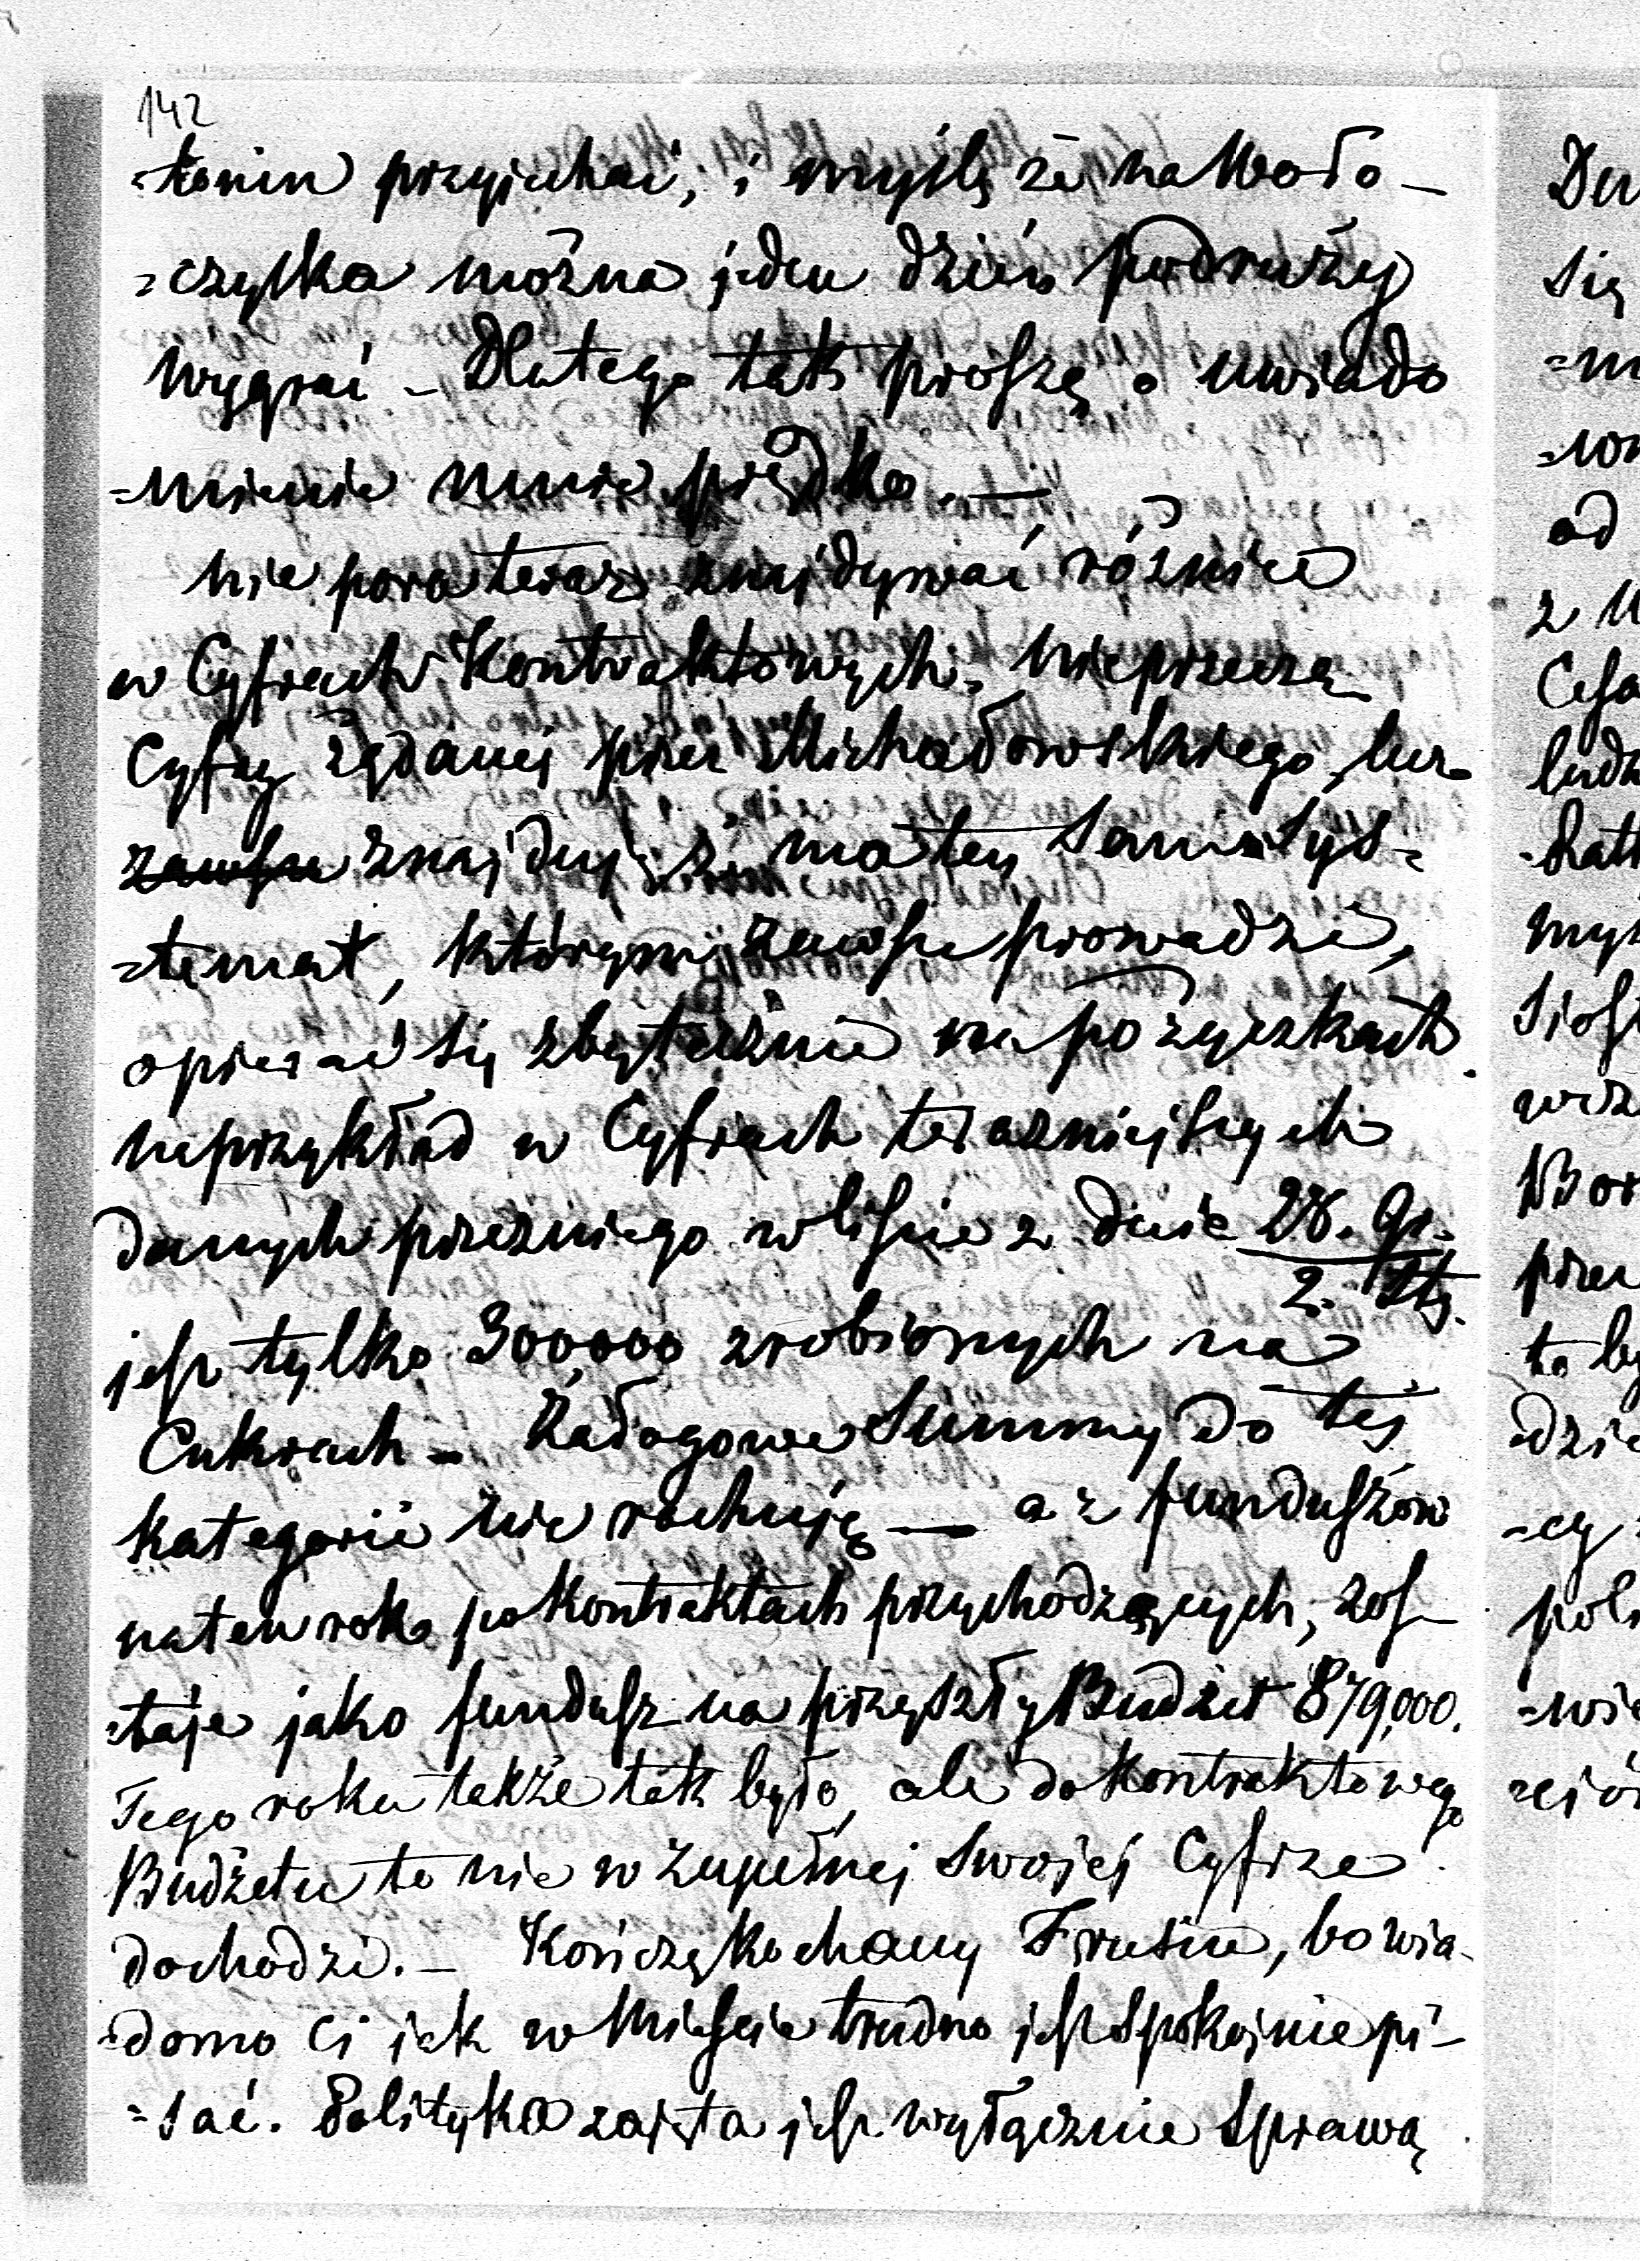 142
-tonin przyjechać, i myślę że na Woło-
=czyska można jeden dzień podruży
wygrać – Dlatego tak proszę o uwiado
=mienie mnie prędko. —
nie pora teraz znajdywać różnice
w Cyfrach Kontraktowych, nieprzeczę
Cyfry żądanej przez Michałowskiego, lecz
zawsze znajduję, że ma ten sam sys-
=temat, którym zawsze prowadzi,
opierać się zbytecznie na pożyczkach.
naprzykład w Cyfrach teraźniejszych
danych przezniego w liście z dnia 28. Gr.
2. St.
jest tylko 300,000 zrobionych na
Cukrach – Zasłogowe Summy do tej
kategorii nie rachuję — a z funduszów
na ten rok po Kontraktach przychodzących, zos-
-taje jako fundusz na przyszły Budżet 879,000.
Tego roku także tak było, ale do kontraktowego
Budżetu to nie w zupełnej swojej Cyfrze
dochodzi. – Kończę kochany Frusiu, bo wia-
-domo Ci jak w Mieście trudno jest spokojnie pi-
=sać. Polityka zajęta jest wyłącznie sprawą